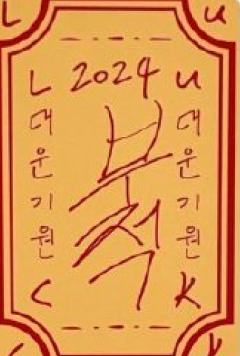 L U
L 2024 U
대운기원
부적
대운기원
C K
C K